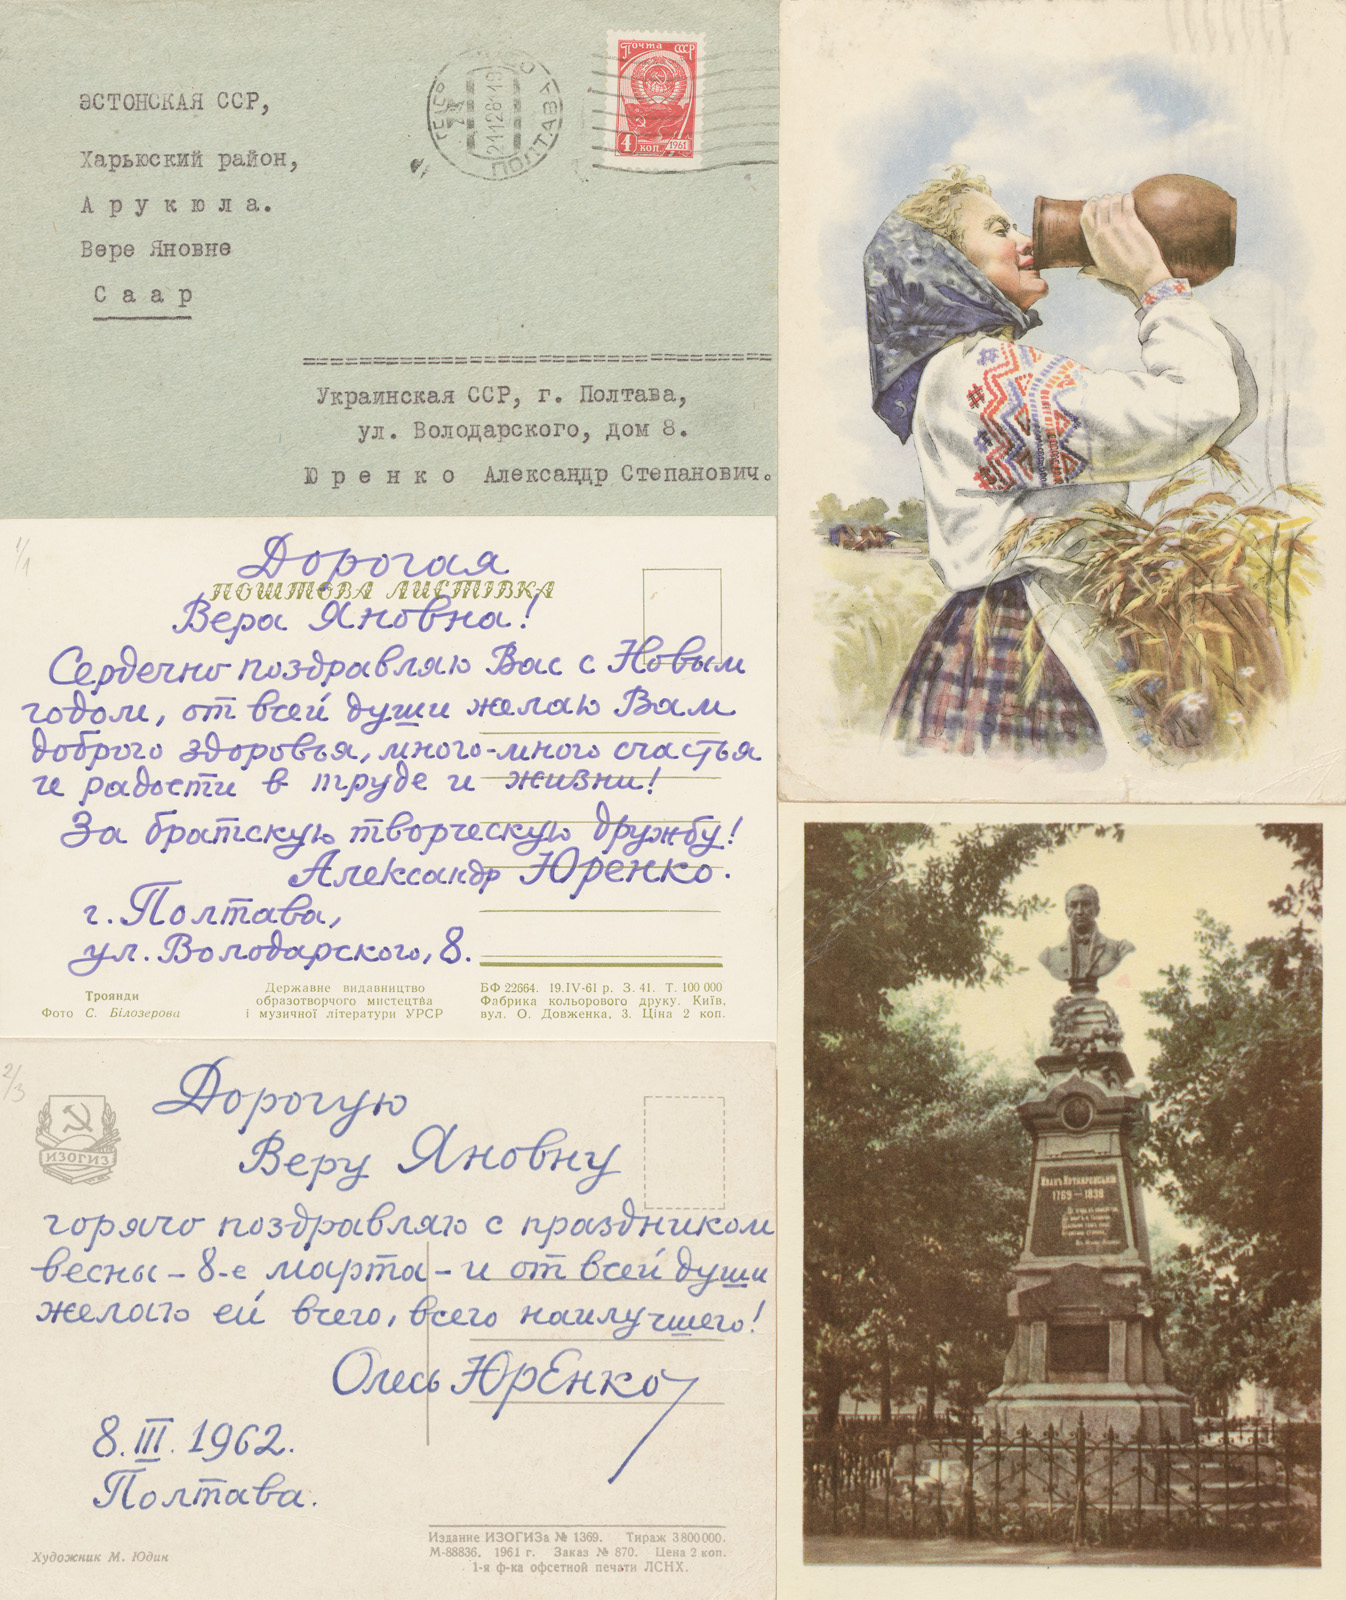 ЭСТОНСКАЯ ССР,
Харьюский район,
Арукюла.
Вере Яновне
Саар
Почта СССР
4 коп. 1961
ПОЛТАВА
=================================
Украинская ССР, г. Полтава,
ул. Володарского, дом 8.
Юренко Александр Степанович.
1/1
Дорогая
ПОШТОВА ЛИСТІВКА
Вера Яновна!
Сердечно поздравляю Вас с Новым
годом, от всей души желаю Вам
доброго здоровья, много-много счастья
и радости в труде и жизни!
За братскую творческую дружбу!
Александр Юренко.
г. Полтава,
ул. Володарского, 8.
Троянди
Фото С. Білозерова
Державне видавництво
образотворчого мистецтва
і музичної літератури УРСР
БФ 22664. 19.IV-61 р. З. 41. Т. 100 000
Фабрика кольорового друку. Київ,
вул. О. Довженка, 3. Ціна 2 коп.
2/3
ИЗОГИЗ
Дорогую
Веру Яновну
горячо поздравляю с праздником
весны – 8-е марта – и от всей души
желаю ей всего, всего наилучшего!
Олесь Юренко
8.III.1962.
Полтава.
Художник М. Юдин
Издание ИЗОГИЗа № 1369. Тираж 3 800 000.
М-88836. 1961 г. Заказ № 870. Цена 2 коп.
1-я ф-ка офсетной печати ЛСНХ.
Иванъ Котляревський
1769 — 1838